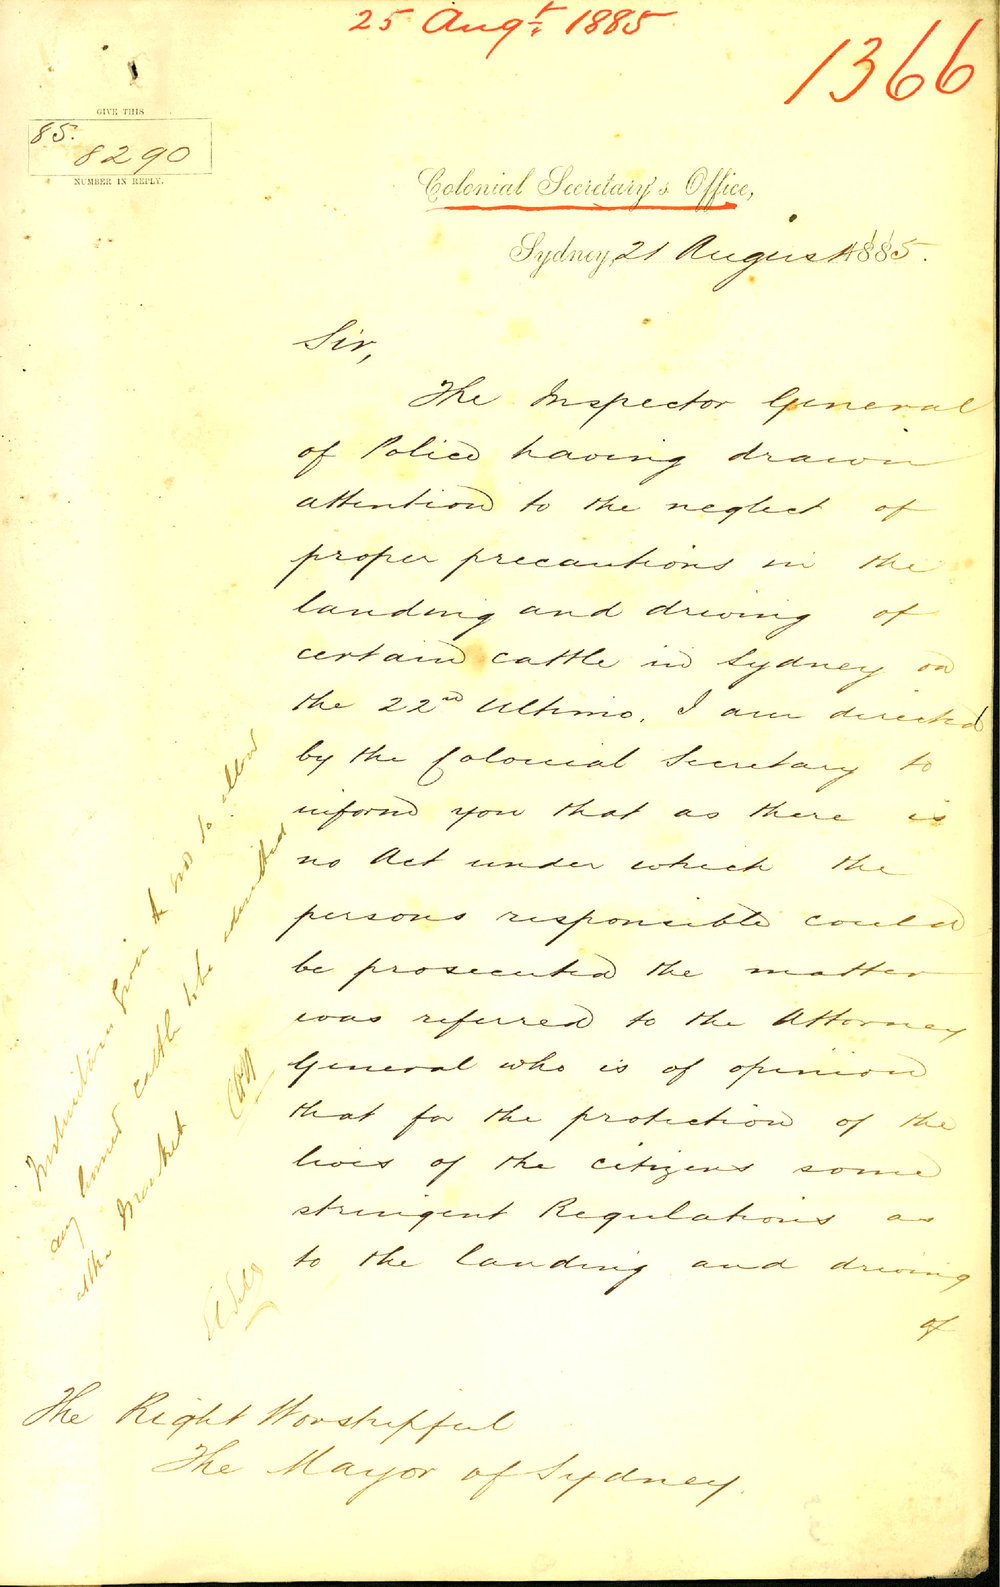 25 Augt 1885
1366
GIVE THIS
85.
8290
NUMBER IN REPLY.
Colonial Secretary's Office,
Sydney, 21 August 1885.
Sir,
The Inspector General
of Police having drawn
attention to the neglect of
proper precautions in the
landing and driving of
certain cattle in Sydney on
the 22nd Ultimo, I am directed
by the Colonial Secretary to
inform you that as there is
no Act under which the
persons responsible could
be prosecuted the matter
was referred to the Attorney
General who is of opinion
that for the protection of the
lives of the citizens some
stringent Regulations as
to the landing and driving
of
The Right Worshipful
The Mayor of Sydney.
Instructions given to not to allow
any horned cattle to be
at the Market